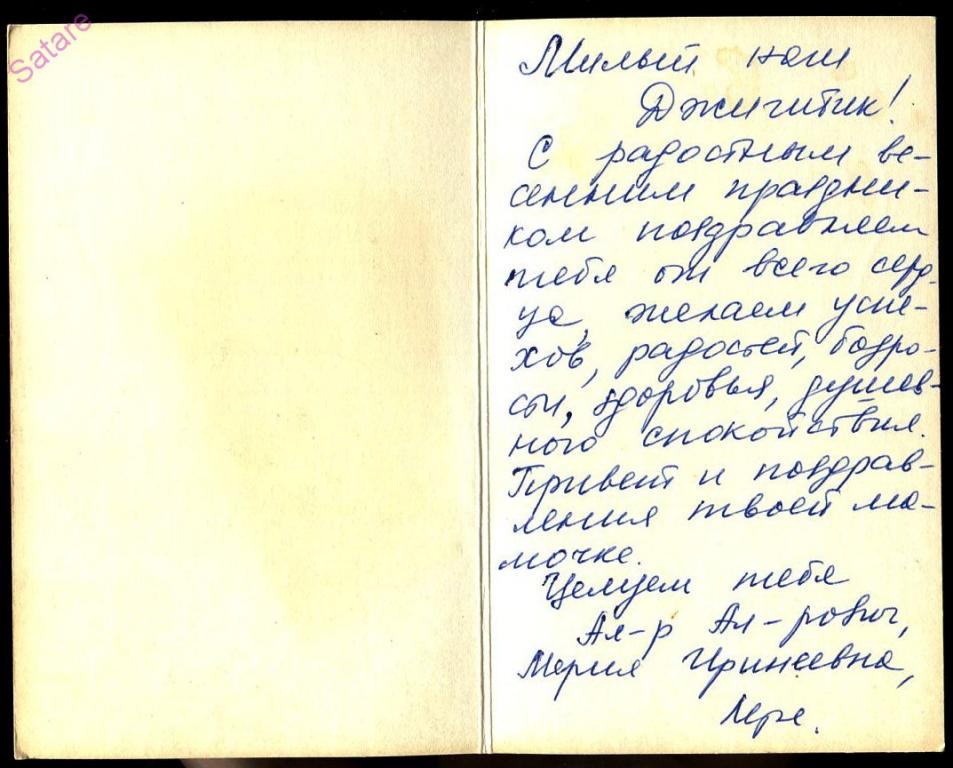 Satare
Милый наш
Джигитик!
С радостным ве-
сенним праздни-
ком поздравляем
тебя от всего серд-
ца, желаем успе-
хов, радостей, бодро-
сти, здоровья, душев-
ного спокойствия.
Привет и поздрав-
ления твоей ма-
мочке.
Целуем тебя
Ал-р Ал-рович,
Мария Иринеевна,